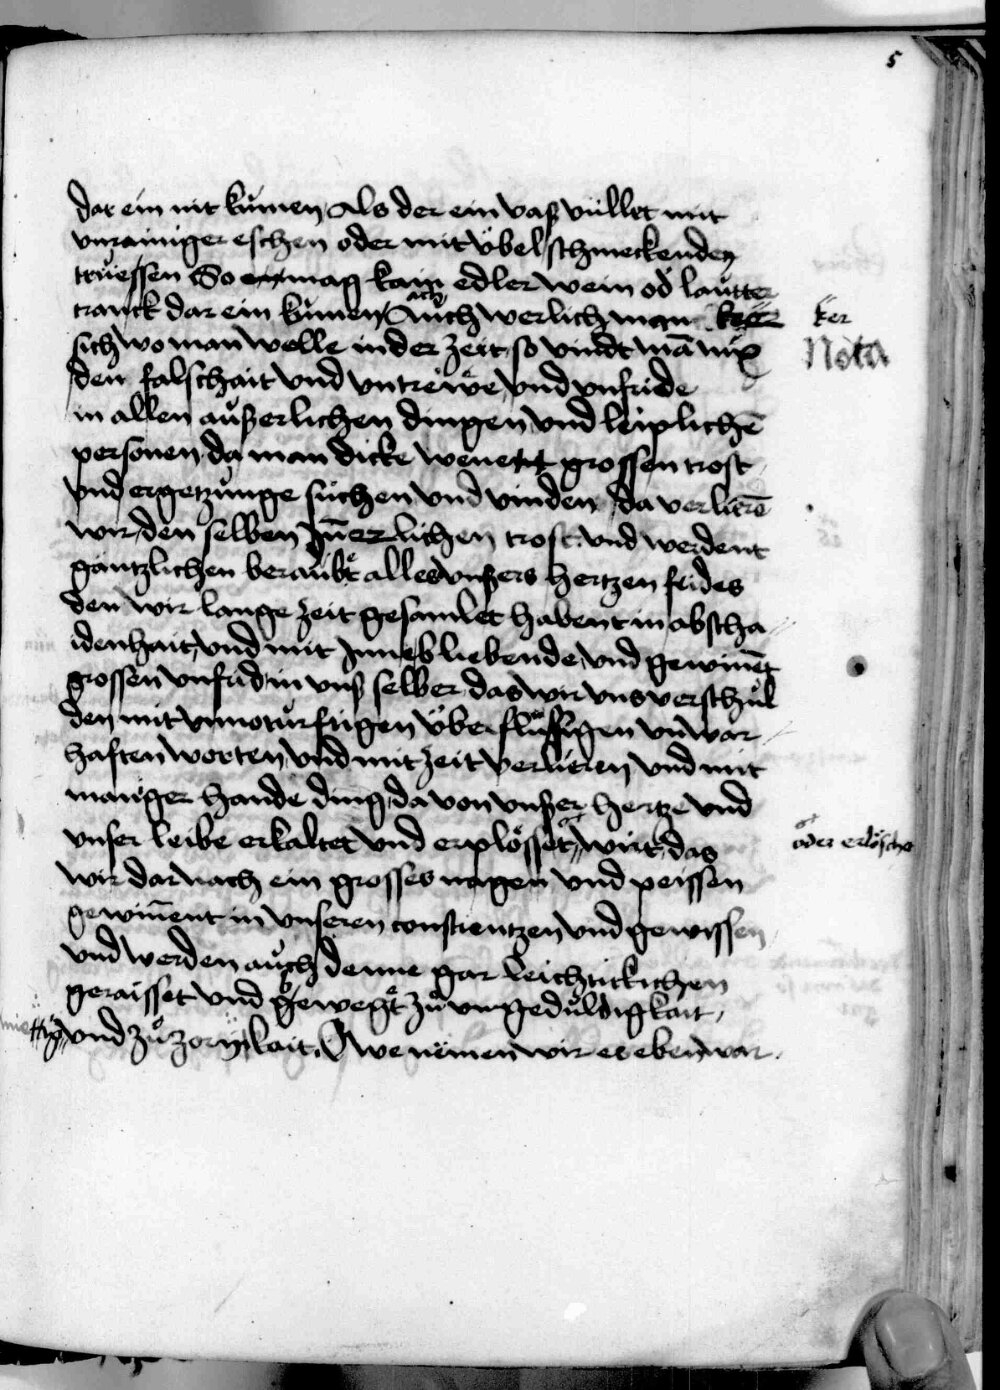 5
dar ein nit kumen Als der ein vaß vüllet mit
vnrainiger eschen oder mit übelschmeckenden
truessen So enmag kain edler wein od lautter
tranck dar ein kumen Auch werlich man ker
ach
ker
sich wo man welle in der zeit so vindt mā nix
Nota
den falschait vnd vntrëwe vnd vnfride
in allen außerlichen dingen vnd leiplichē
personen da man dicke wenet grossen trost
vnd ergetzunge suchen vnd vinden da verlierē
wir den selben Inerlichen trost vnd werdent
gäntzlichen beraubt alles vnßers hertzen frides
den wir lange zeit gesamlet habent in abscha
idenhait vnd mit Inne bliebende vnd gewinēt
grossen vnfrid in vns selber das wir vns verschul
den mit vnnoturftigen überflüssigen vnwar
haften worten vnd mit zeit verlieren vnd mit
maniger hande ding da von vnßer hertze vnd
vnser leibe erkaltet vnd erplösset wirt das
oder erlösche
wir darnach ein grosses nagen vnd peissen
gewinēnt in vnseren conscientzen vnd gewissen
vnd werden auch denne gar leichticklichen
geraisset vnd gewegt zu vngeduldigkait
vnd zu zornikait O we nemen wir es eben war